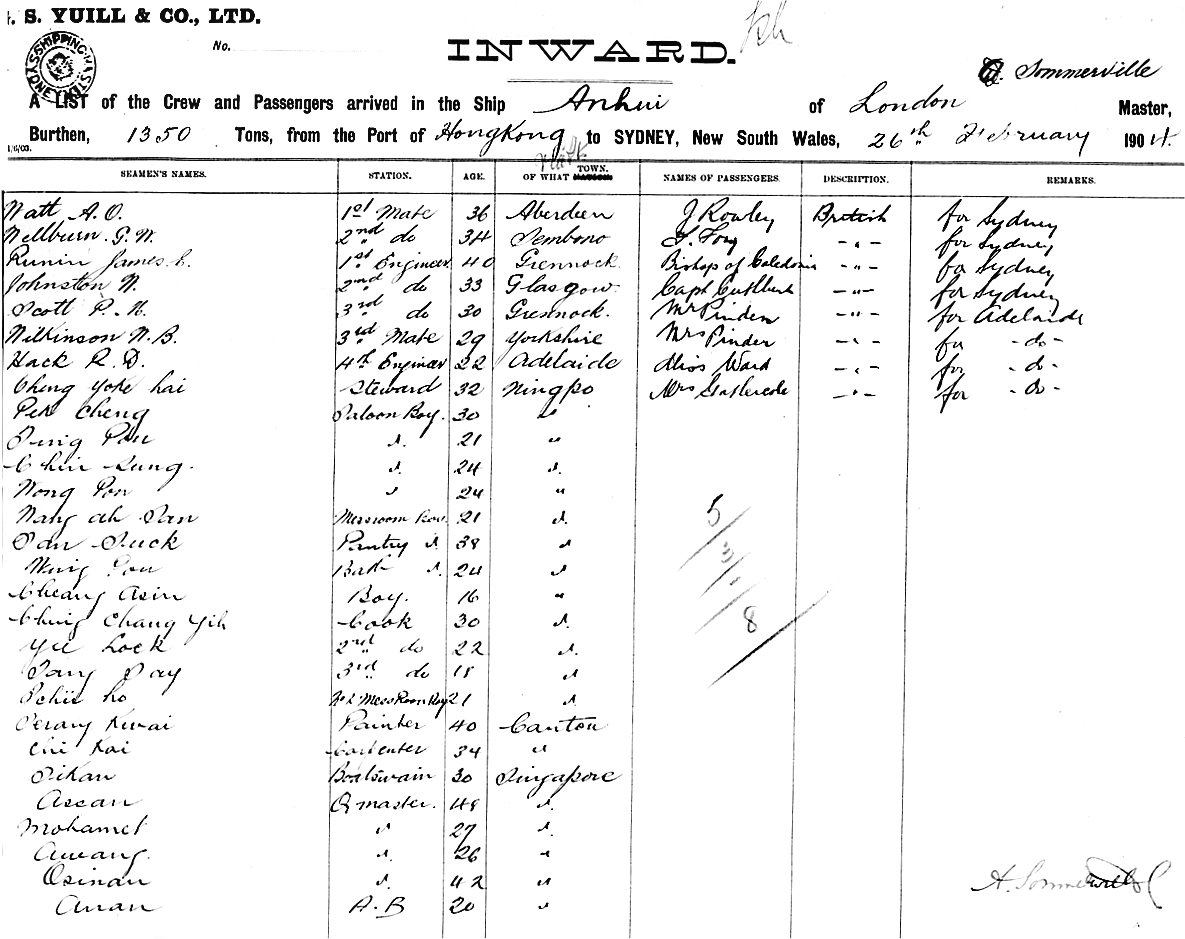 S. YUILL & CO., LTD.
No.
INWARD.
SYDNEY SHIPPING MASTER
A. Sommerville
A LIST of the Crew and Passengers arrived in the Ship Anhui of London Master,
Burthen, 1350 Tons, from the Port of Hongkong to SYDNEY, New South Wales, 26th February 1904.
1/6/03.
SEAMEN'S NAMES. STATION. AGE. OF WHAT TOWN. NAMES OF PASSENGERS. DESCRIPTION. REMARKS.
Watt A.O. 1st Mate 36 Aberdeen J Rowley British for Sydney
Wellburn. G.W. 2nd do 34 -"- for Sydney
James 1st Engineer 40 Grennock. Bishop of Caledonia -"- for Sydney
Johnston W. 2nd do 33 Glasgow. Capt Cuthbert -"- for Sydney
Scott P. 3rd do 30 Grennock. Mr Pinder -"- for Adelaide
Wilkinson W.B. 3rd Mate 29 Yorkshire Mrs Pinder -"- for -do-
Hack R.D. 4th Engineer 22 Adelaide Miss Ward -"- for -do-
Cheng Yoke hai Steward 32 Ningpo Mrs -"- for -do-
Peh Cheng Saloon Boy. 30 "
" 21 "
Chin Lung. " 24 "
Wong Pon " 24 "
Wang ah San Messroom Boy. 21 "
San Suck Pantry " 38 "
Wing Bath " 24 "
Cheang Asin Boy. 16 "
Ching Chang Yih Cook 30 "
Yee Lock 2nd do 22 "
Say 3rd do 18 "
Ho No 2 Mess Room Boy 21 "
Kwai Painter 40 Canton
Chi Kai Carpenter 34 "
Boatswain 30 Singapore
Assan Q master. 48 "
Mohamet " 27 "
Awang. " 26 "
Osinan " 42 "
A.B 20 "
5/3/18
A. Sommerville